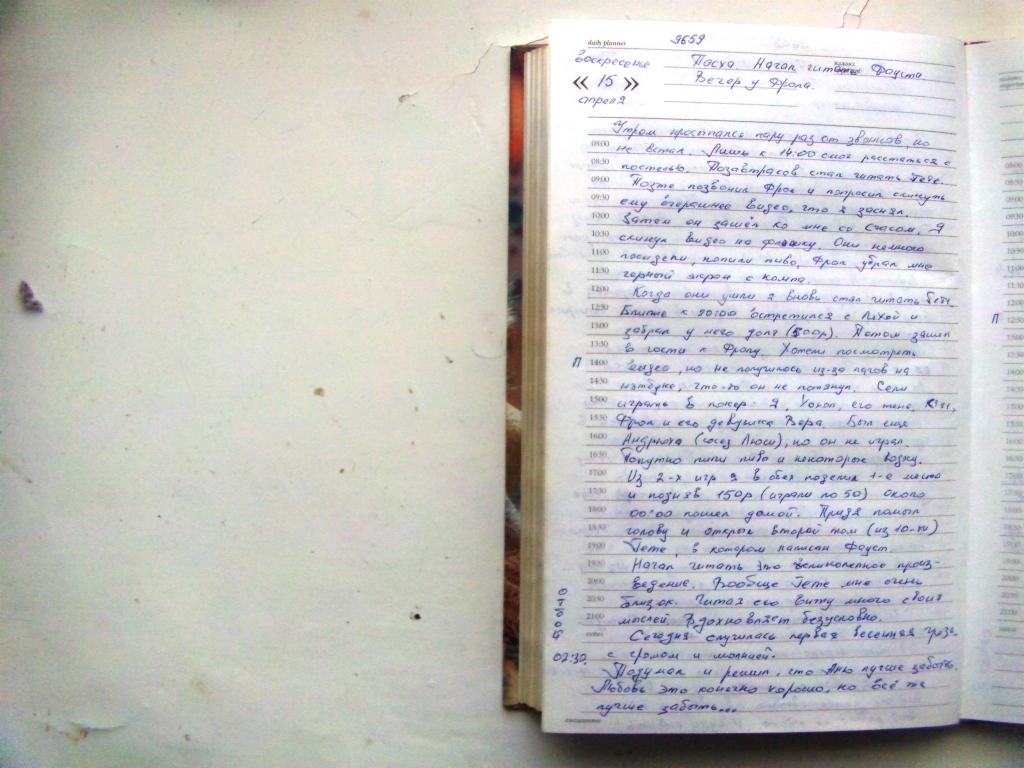 daily planner
9659
воскресенье
Пасха. Начал читать Фауста.
« 15 »
Вечер у Фрола.
апреля
Утром просыпался пару раз от звонков но
08:00
не встал. Лишь к 14:00 смог расстаться с
08:30
постелью. Позавтракав стал читать Гёте.
09:00
Позже позвонил Фрол и попросил скинуть
09:30
ему вчерашнее видео, что я заснял.
10:00
Затем он зашёл ко мне со Стасом. Я
10:30
скинул видео на флешку. Они немного
11:00
посидели, попили пиво, Фрол убрал мне
11:30
черный экран с компа.
12:00
Когда они ушли я вновь стал читать Гёте.
12:30
Ближе к 20:00 встретился с Лёхой и
13:00
забрал у него долг (500р). Потом зашел
13:30
в гости к Фролу. Хотели посмотреть
П 14:00
видео, но не получилось из-за лагов на
14:30
нэтбуке, что-то он не потянул. Сели
15:00
играть в покер: Я, Хохол, его жена,
15:30
Фрол и его девушка Вера. Был еще
16:00
Андрюха (сосед Люси), но он не играл.
16:30
Попутно пили пиво и некоторые водку.
17:00
Из 2-х игр я в обеих поделил 1-е место
17:30
и поднял 150р (играли по 50) Около
18:00
00:00 пошел домой. Придя помыл
18:30
голову и открыл второй том (из 10-ти)
19:00
Гете, в котором написан Фауст.
19:30
Начал читать это великолепное произ-
20:00
ведение. Вообще Гете мне очень
20:30
близок. Читая его вижу много своих
21:00
мыслей. Вдохновляет безусловно.
notes
Сегодня случилась первая весенняя гроза.
02:30.
с громом и молнией.
Подумал и решил, что Аню лучше забыть.
Любовь это конечно хорошо, но всё же
лучше забыть...
П